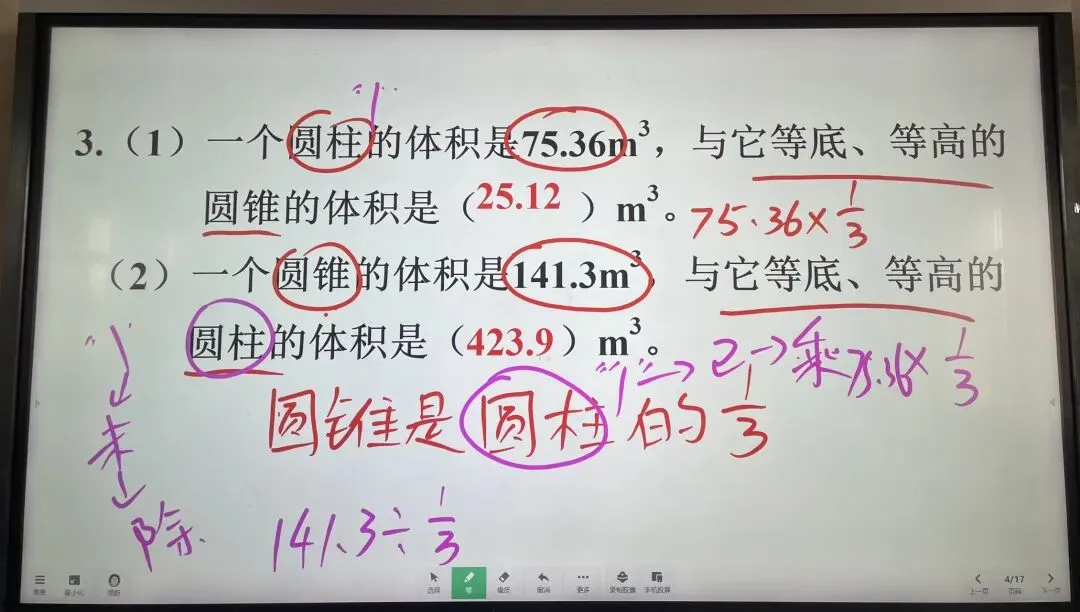 3.（1）一个圆柱的体积是75.36m³，与它等底、等高的
圆锥的体积是（25.12）m³。75.36×1/3
（2）一个圆锥的体积是141.3m³，与它等底、等高的
圆柱的体积是（423.9）m³。
"1"→已→乘 75.36×1/3
圆锥是圆柱的1/3
"1"
↓
未
↓
除
141.3÷1/3
选择 笔 橡皮 撤消 更多 录制胶囊 手机投屏
菜单 最小化
上一页 4/17 页码 下一页